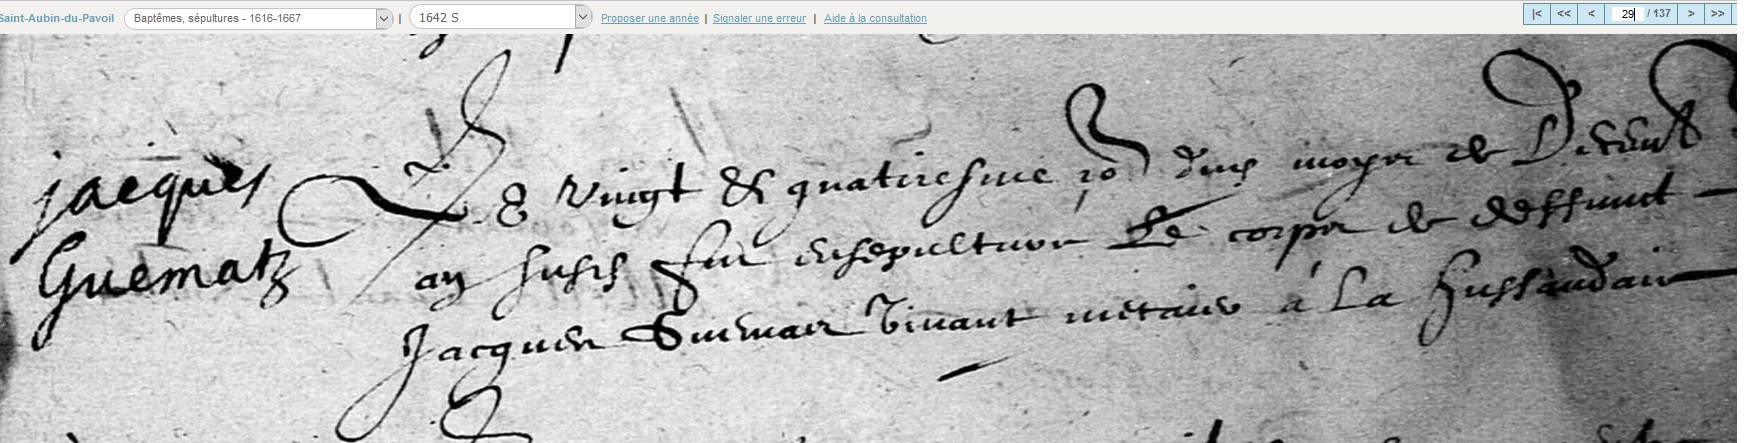 Saint-Aubin-du-Pavoil Baptêmes, sépultures - 1616-1667 | 1642 S Proposer une année | Signaler une erreur | Aide à la consultation |< << < 29 / 137 > >>
jacques
Guematz
Le vingt & quatriesme jo dudit moys de Decemb
an susd fut ensepulture Le corps de deffunct
Jacques Guemas vivant metaier a La Hussaudaie